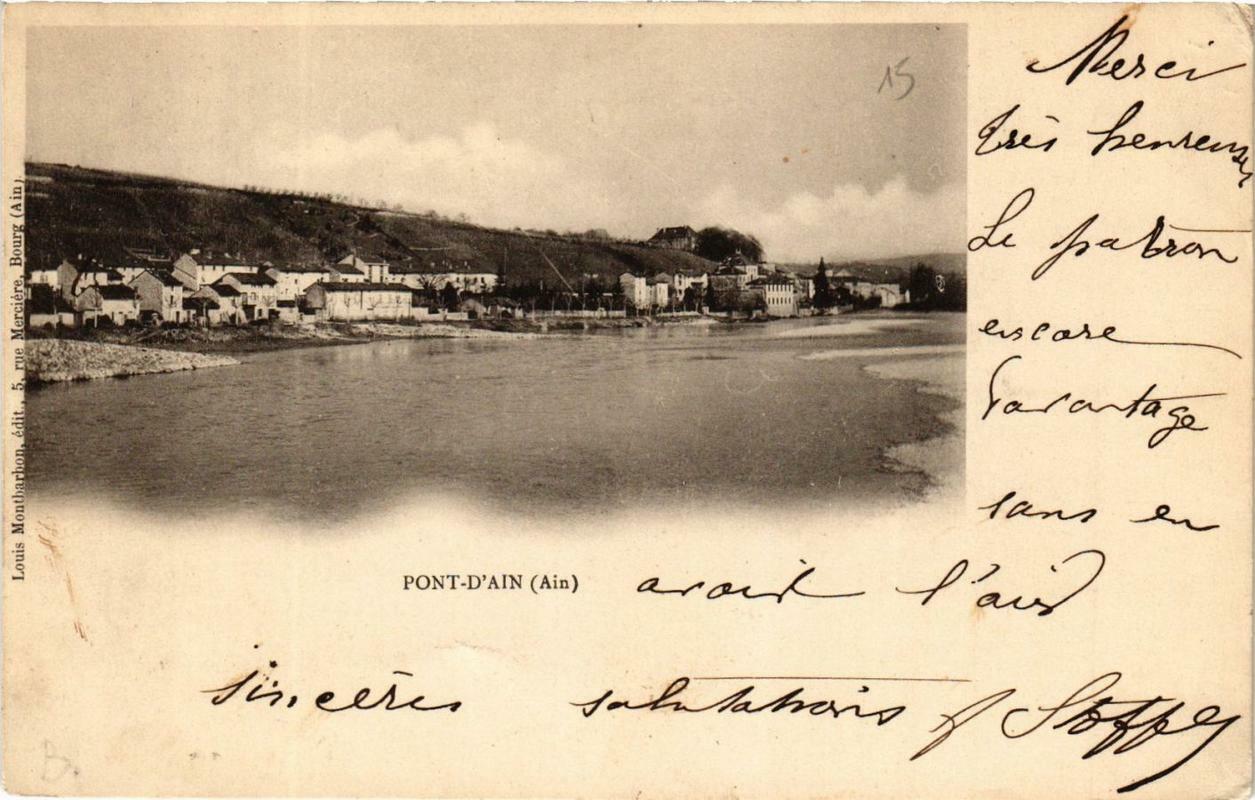 15
Merci
très heureuse
Le patron
encore
davantage
sans en
avoir l'air
sincères salutations
Louis Montbarbon, édit., 5, rue Mercière, Bourg (Ain).
PONT-D'AIN (Ain)
B.